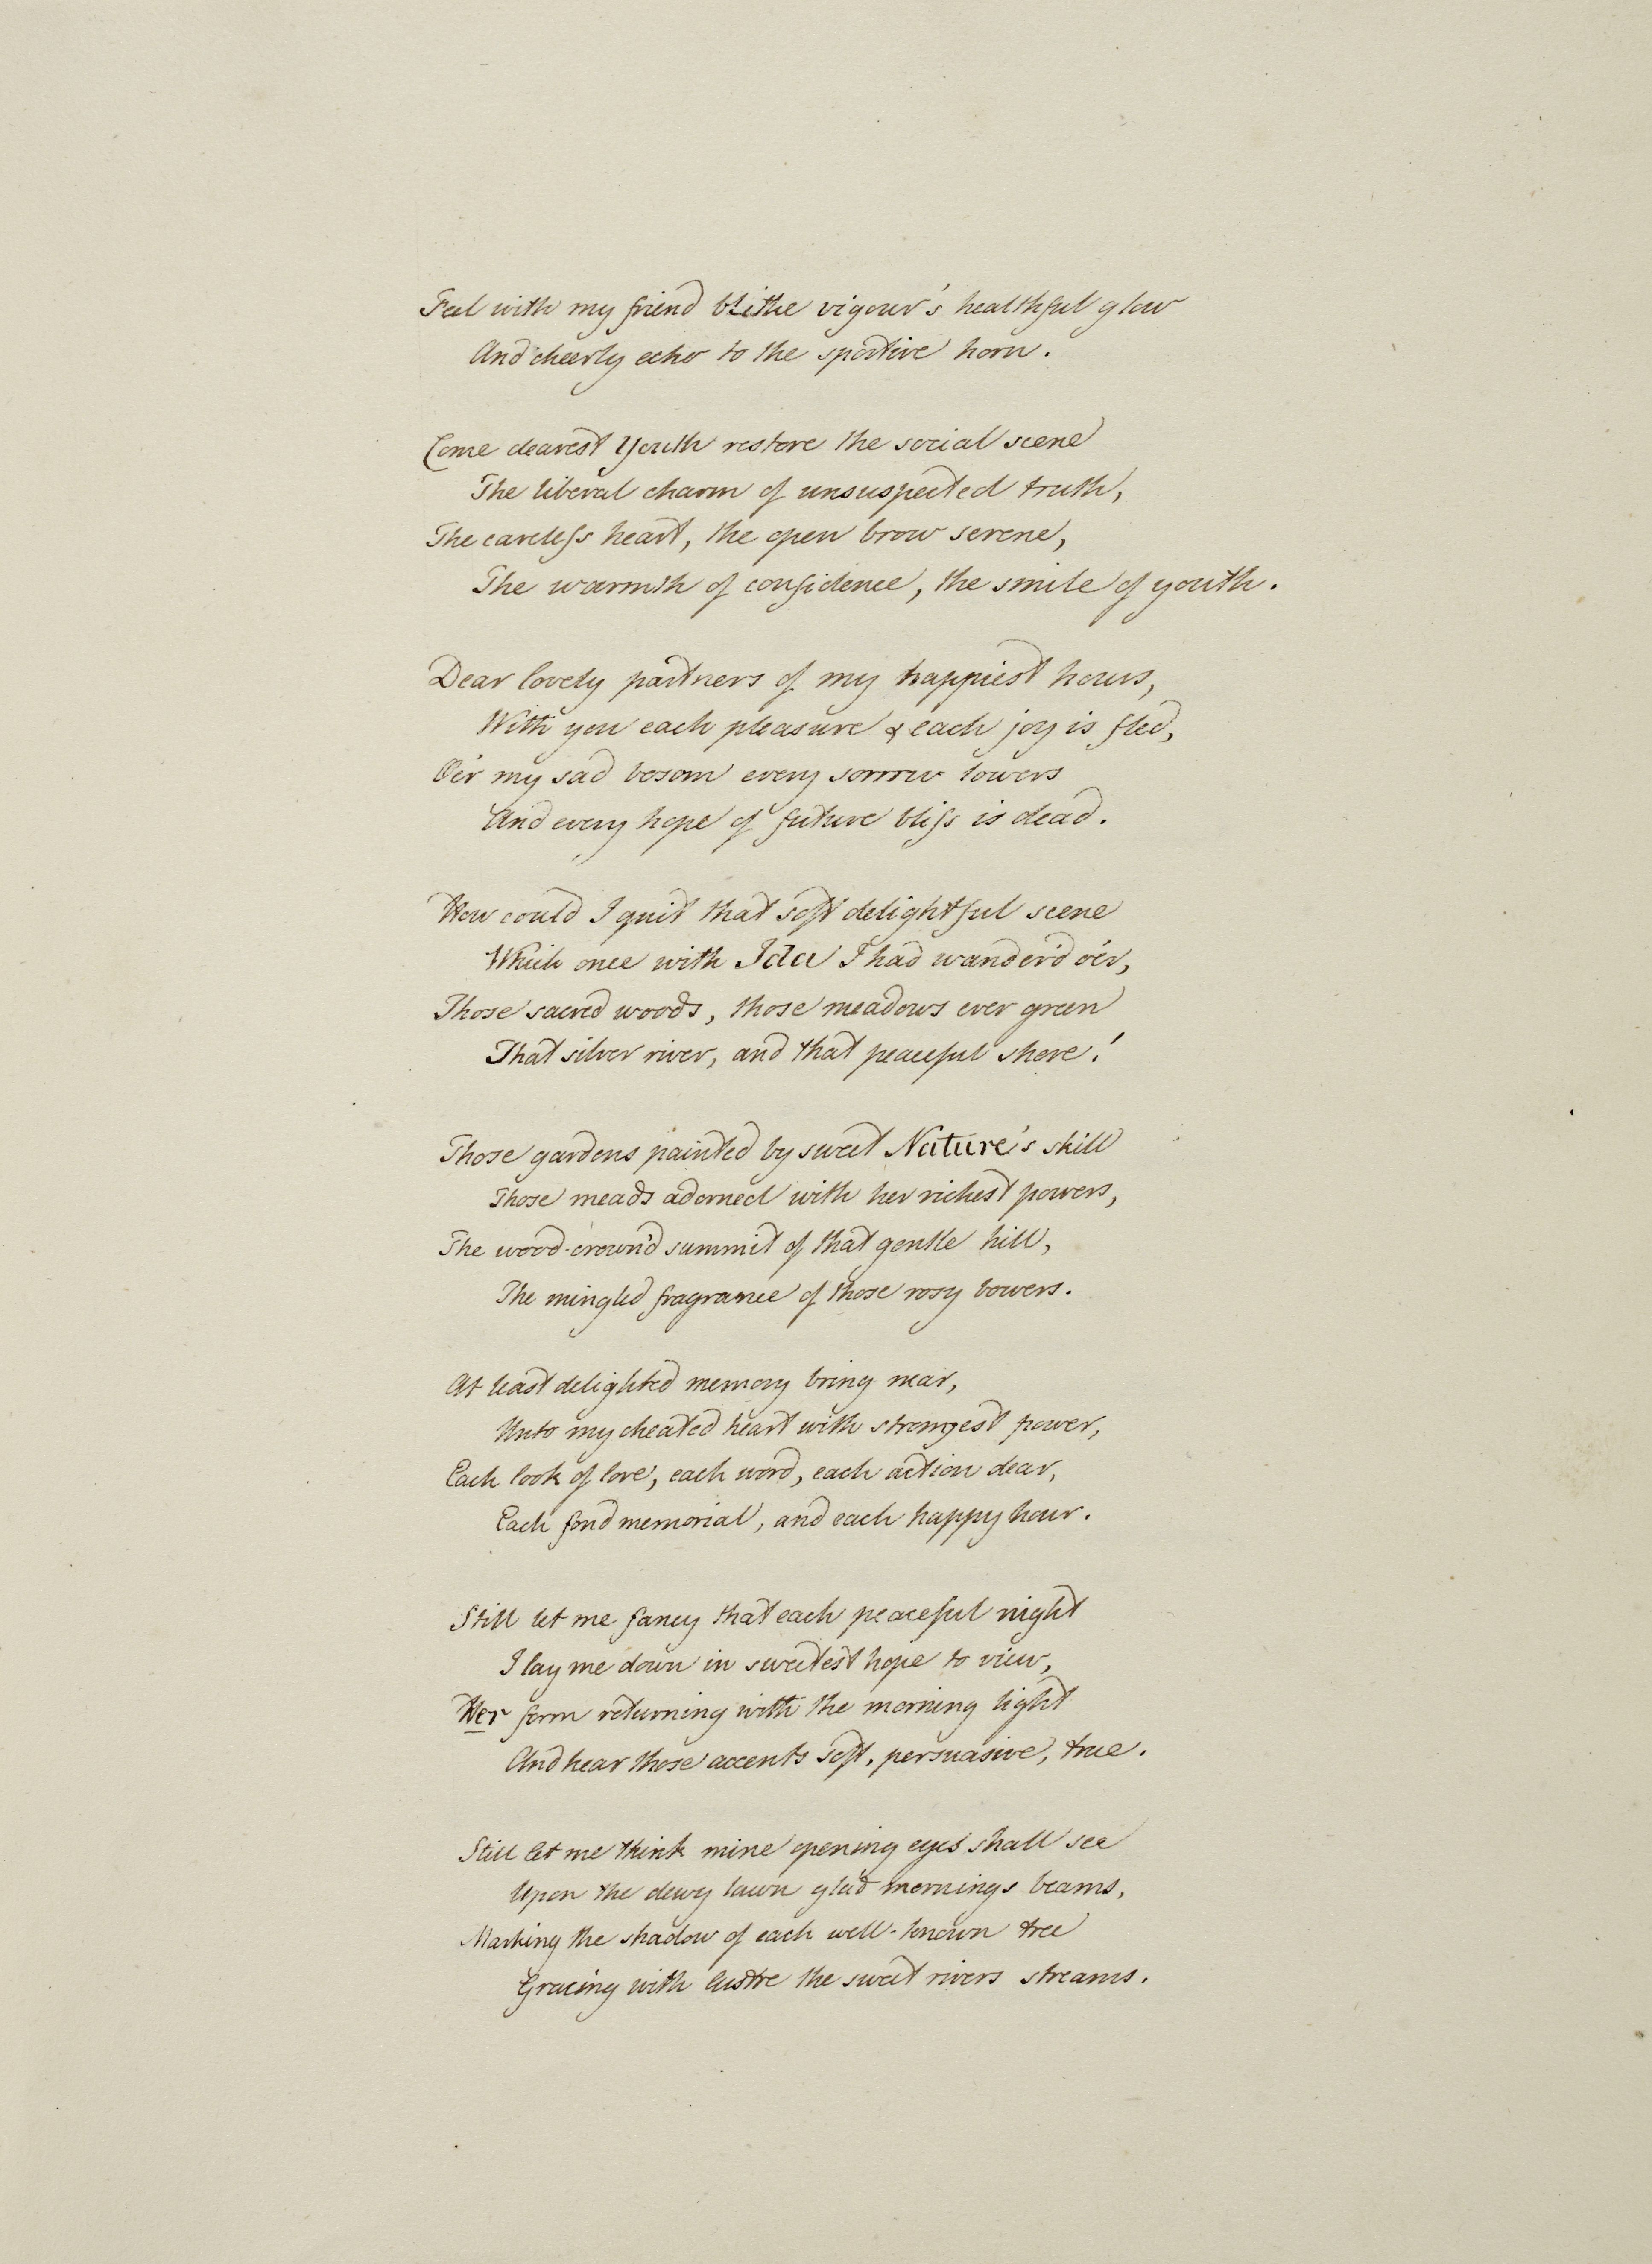 Feel with my friend blithe vigour's healthful glow
And cheerly echo to the sportive horn.
Come dearest Youth restore the social scene
The liberal charm of unsuspected truth,
The careless heart, the open brow serene,
The warmth of confidence, the smile of youth.
Dear lovely partners of my happiest hours,
With you each pleasure & each joy is fled,
O'er my sad bosom every sorrow lowers
And every hope of future bliss is dead.
How could I quit that soft delightful scene
Which once with Ida I had wander'd o'er,
Those sacred woods, those meadows ever green
That silver river, and that peaceful shore!
Those gardens painted by sweet Nature's skill
Those meads adorned with her richest powers,
The wood-crown'd summit of that gentle hill,
The mingled fragrance of those rosy bowers.
At least delighted memory bring near,
Unto my cheated heart with strongest power,
Each look of love, each word, each action dear,
Each fond memorial, and each happy hour.
Still let me fancy that each peaceful night
I lay me down in sweetest hope to view,
Her form returning with the morning light
And hear those accents soft, persuasive, true.
Still let me think mine opening eyes shall see
Upon the dewy lawn glad mornings beams,
Marking the shadow of each well-known tree
Gracing with lustre the sweet rivers streams.